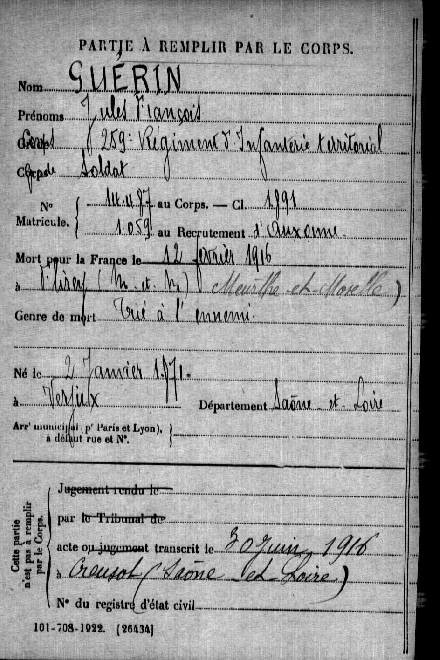 PARTIE À REMPLIR PAR LE CORPS.
Nom GUÉRIN
Prénoms Jules François
Corps 259e Régiment d'Infanterie territorial
Grade Soldat
N° 14.487 au Corps. — Cl. 1891
Matricule. 1059 au Recrutement d'Auxonne
Mort pour la France le 12 février 1916
à Flirey (M. et M.) Meurthe et Moselle)
Genre de mort Tué à l'ennemi
Né le 2 Janvier 1871
à Verjux Département Saône et Loire
Arrt municipal (pr Paris et Lyon),
à défaut rue et N°.
Cette partie
n'est pas à remplir
par le Corps.
Jugement rendu le
par le Tribunal de
acte ou jugement transcrit le 30 Juin 1916
à Creusot (Saône et Loire)
N° du registre d'état civil
101-708-1922. [26434]